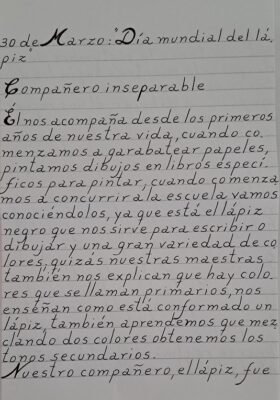 30 de Marzo: "Día mundial del lá-
piz"
Compañero inseparable
Él nos acompaña desde los primeros
años de nuestra vida, cuando co-
menzamos a garabatear papeles,
pintamos dibujos en libros especí-
ficos para pintar, cuando comenza
mos a concurrir a la escuela vamos
conociéndolos, ya que está el lápiz
negro que nos sirve para escribir o
dibujar y una gran variedad de co
lores, quizás nuestras maestras
también nos explican que hay colo-
res que se llamán primarios, nos
enseñan como está conformado un
lápiz, también aprendemos que mez
clando dos colores obtenemos los
tonos secundarios.
Nuestro compañero, el lápiz, fue